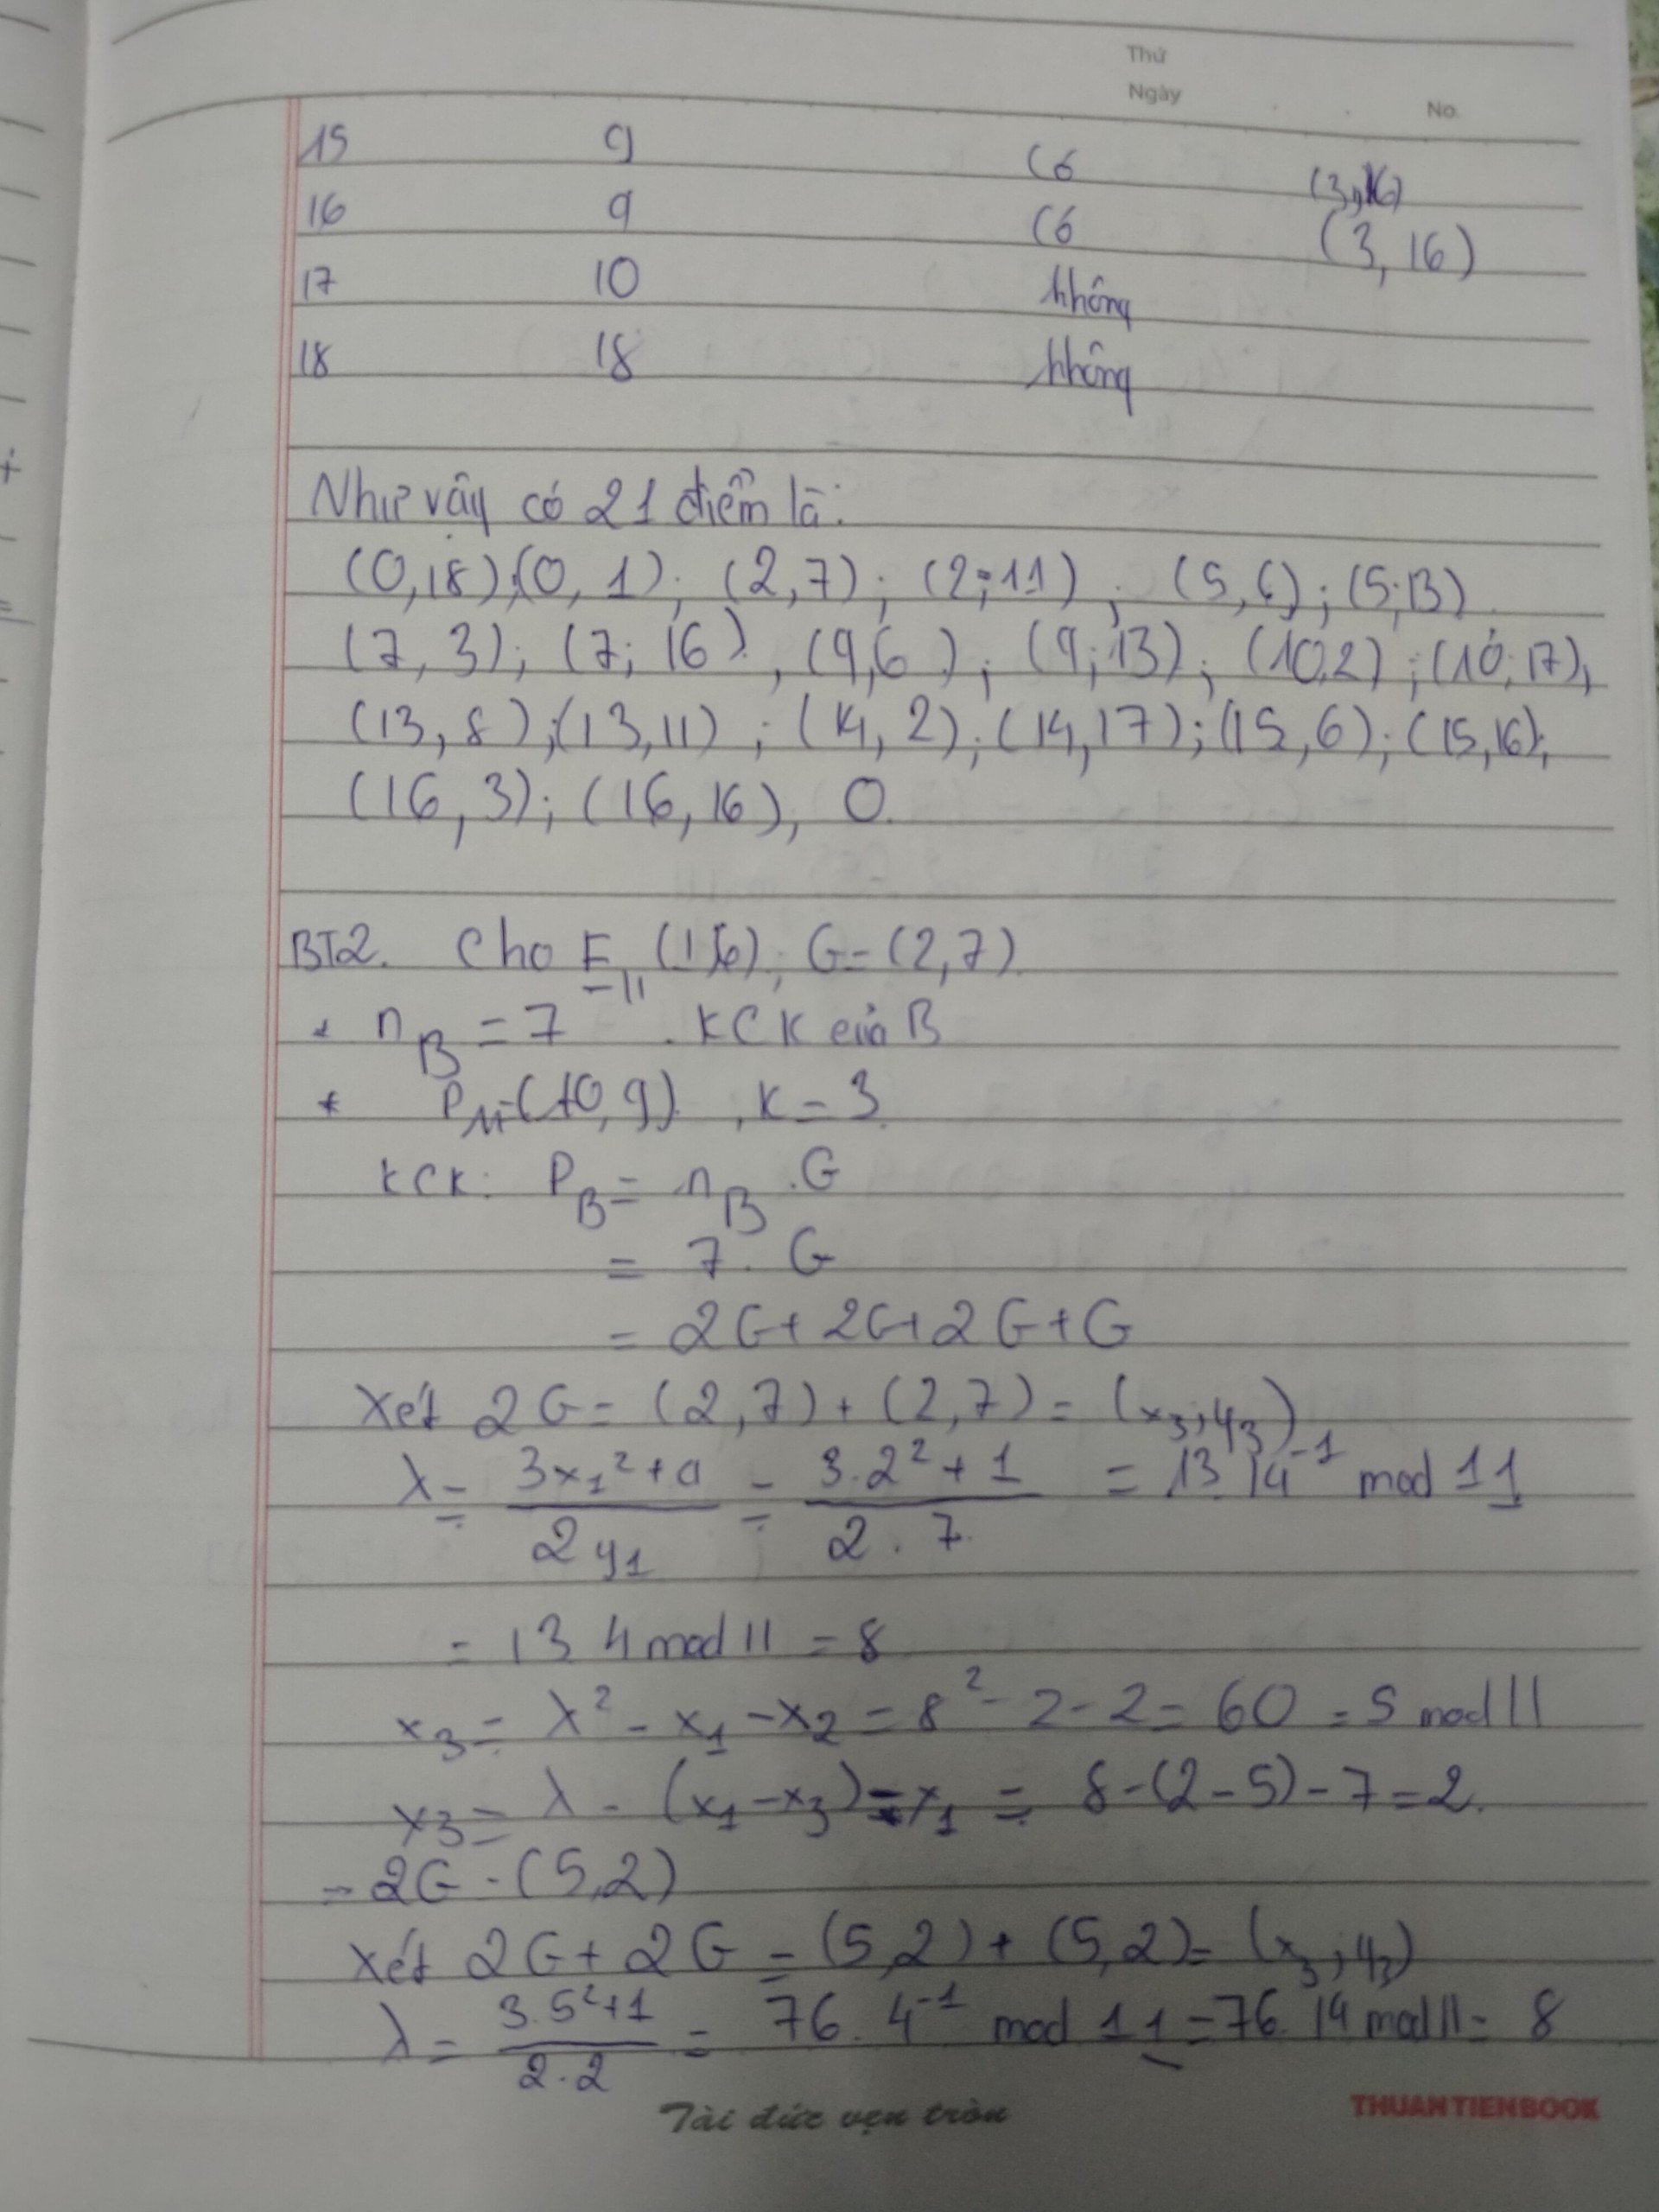 Thứ
Ngày
No.
15 9 Có (3,16)
16 9 Có (3, 16)
17 10 không
18 18 không
Như vậy có 21 điểm là:
(0,18);(0, 1); (2,7); (2;11); (5,6); (5;13)
(7, 3); (7; 16), (9,6); (9;13); (10,2); (10;17),
(13, 8);(13,11); (14, 2); (14,17); (15,6); (15,16);
(16, 3); (16,16), O.
BT2. Cho E₁₁ (1,6), G = (2,7).
* n_B = 7 . KCK của B
* P_M=(10,9), K = 3.
KCK: P_B = n_B . G
= 7. G
= 2G+ 2G+2G+G
Xét 2G = (2,7) + (2,7) = (x₃; y₃)
λ = (3x₁²+a)/(2y₁) = (3.2²+1)/(2.7) = 13.14⁻¹ mod 11
= 13 4 mod 11 = 8
x₃ = λ² - x₁ - x₂ = 8² - 2 - 2 = 60 = 5 mod 11
x₃ = λ - (x₁ - x₃) - x₁ = 8-(2-5)-7=2.
- 2G - (5,2)
Xét 2G + 2G = (5,2) + (5,2) = (x₃; y₃)
λ = (3.5²+1)/(2.2) = 76. 4⁻¹ mod 11 = 76. 14 mod 11 = 8
Tài đức vẹn tròn
THUANTIENBOOK